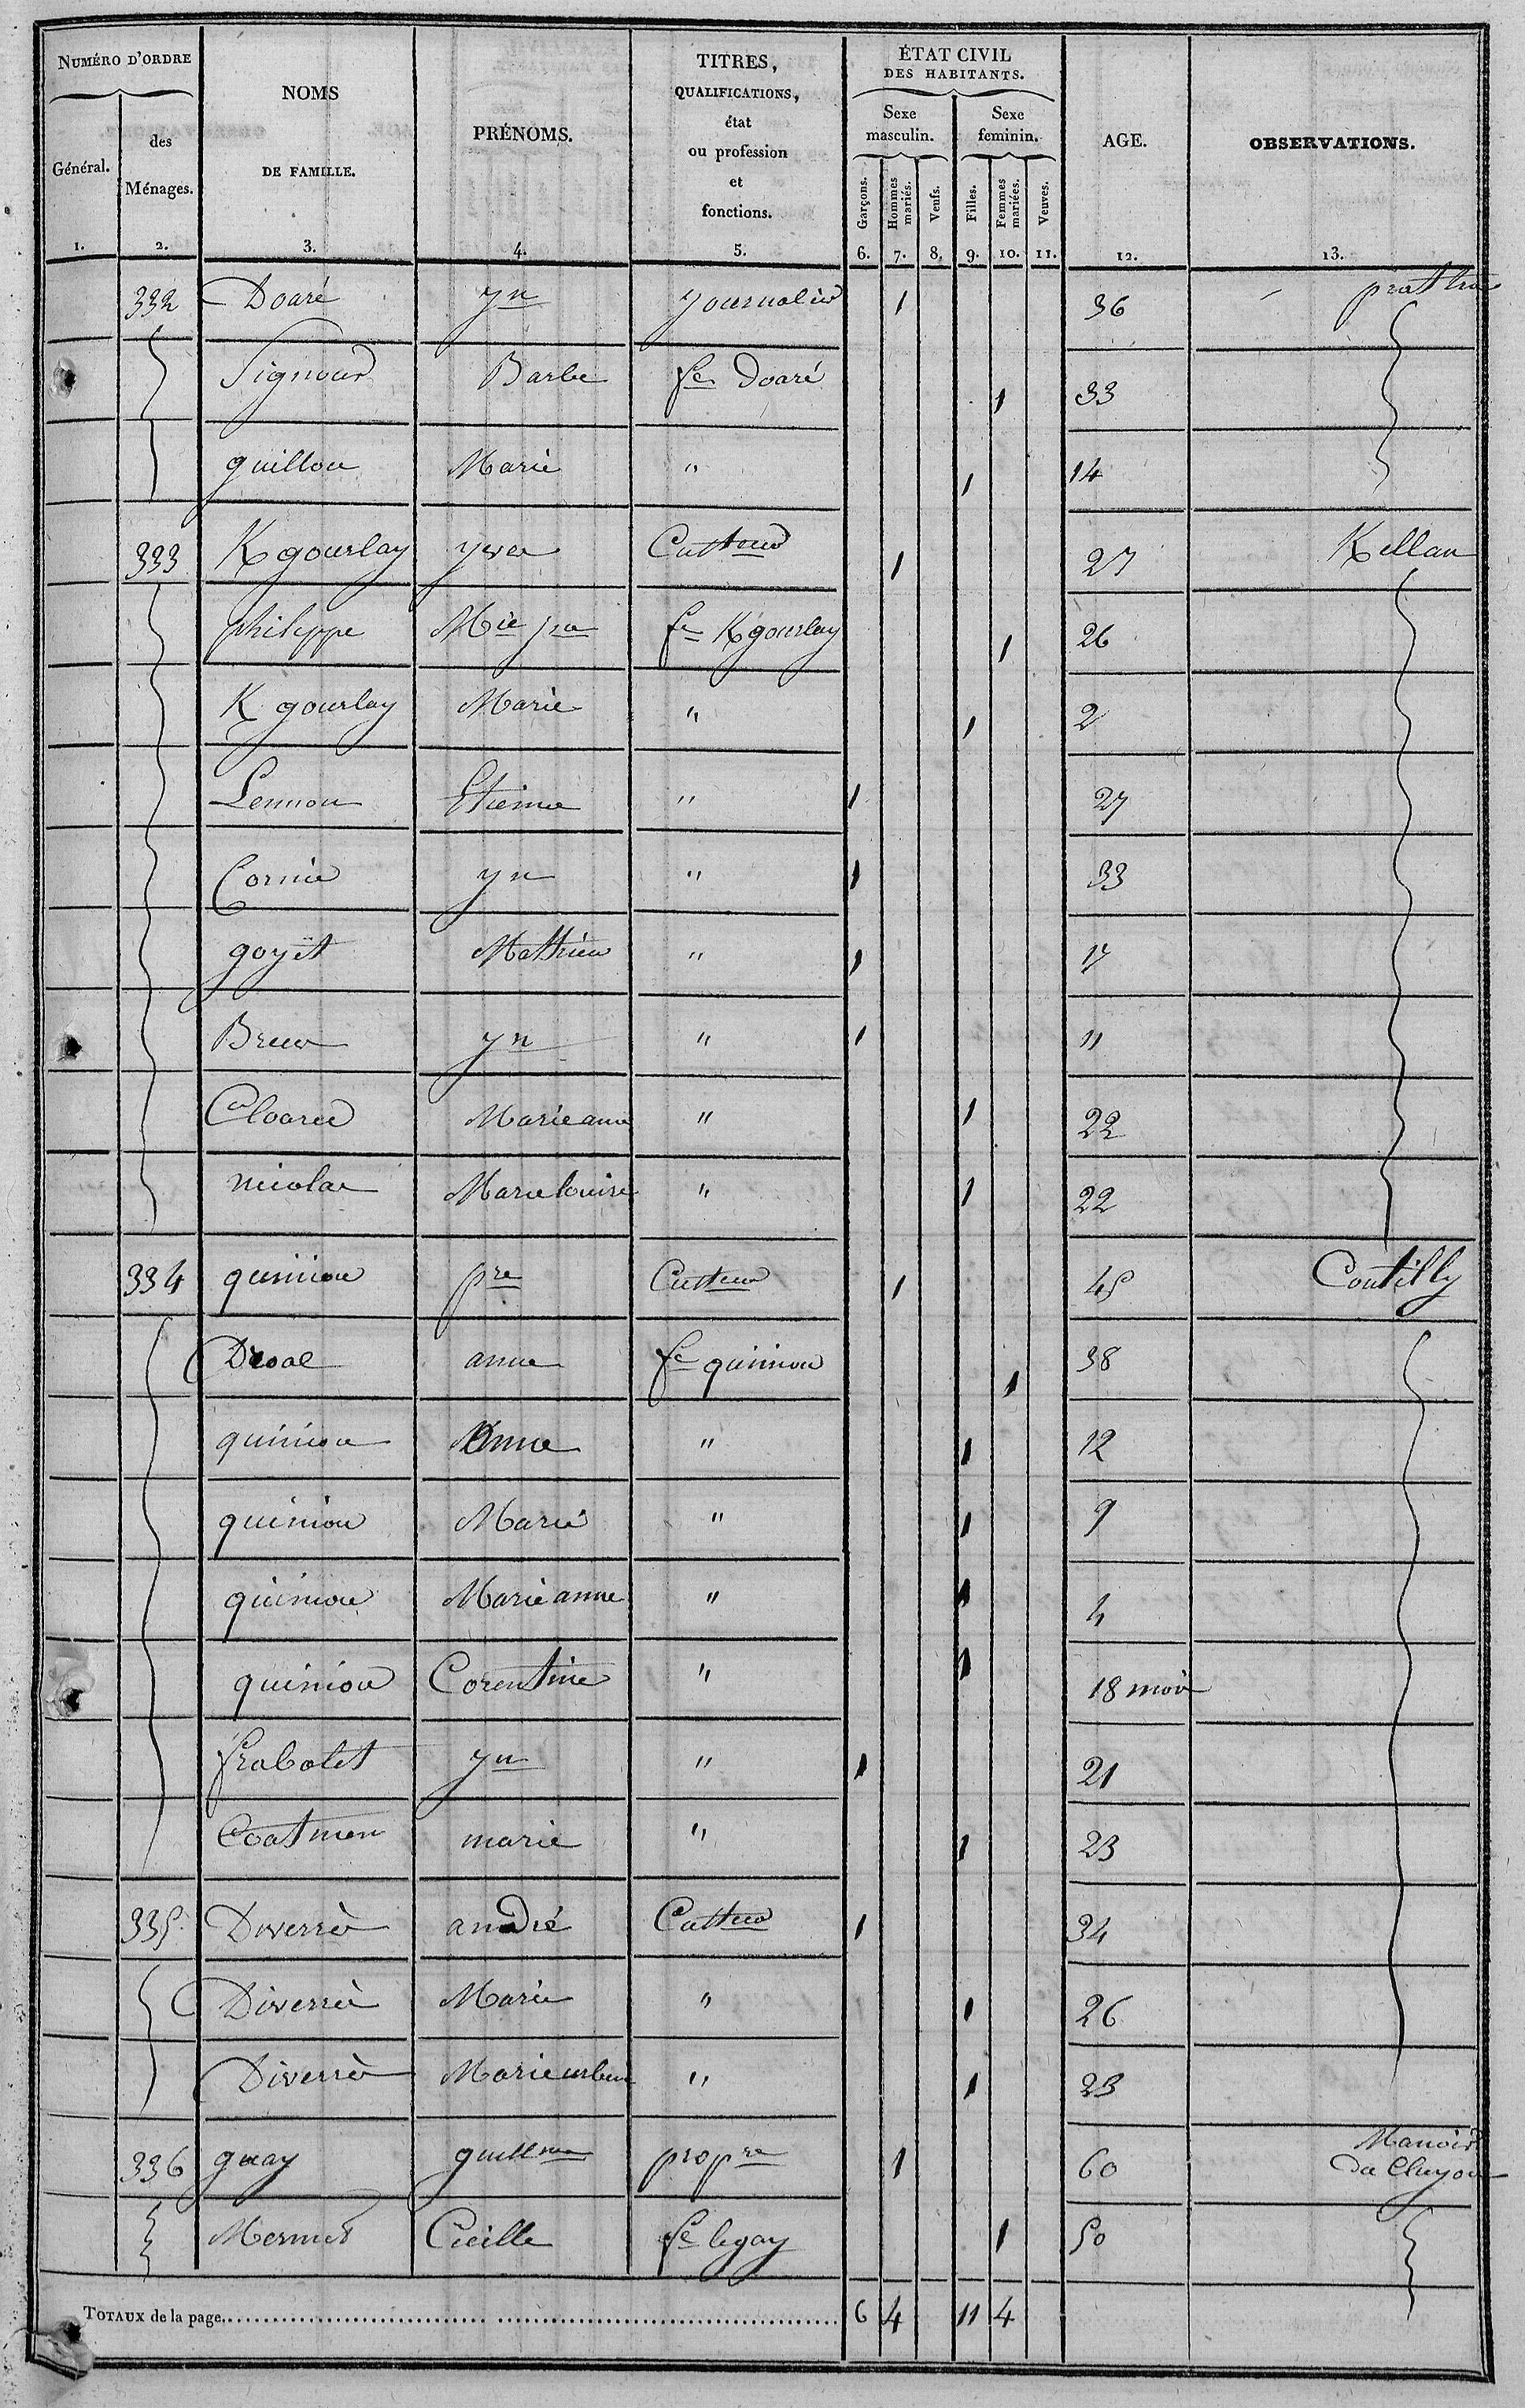 NUMÉRO D'ORDRE
Général.
des
Ménages.
NOMS
DE FAMILLE.
PRÉNOMS.
TITRES,
QUALIFICATIONS,
état
ou profession
et
fonctions.
ÉTAT CIVIL
DES HABITANTS.
Sexe
masculin.
Sexe
feminin.
Garçons.
Hommes
mariés.
Veufs.
Filles.
Femmes
mariées.
Veuves.
AGE.
OBSERVATIONS.
1. 2. 3. 4. 5. 6. 7. 8. 9. 10. 11. 12. 13.
332 Doaré yn journalier 1 36
Signour Barbe fe Doaré 1 33
guillou Marie " 1 14
333 Kgourlay yves Cultteur 1 27 Kellan
philippe Mie jne fe Kgourlay 1 26
K gourlay Marie " 1 2
Lennon Etienne " 1 27
Cornic yn " 1 33
goyet Mathieu " 1 17
Brun yn " 1 11
Cloarec Marie anne " 1 22
nicolas Marie louise " 1 22
334 quiniou pre Cultteur 1 45 Coutilly
Droal anne fe quiniou 1 38
quiniou Anne " 1 12
quiniou Marie " 1 9
quiniou Marie anne " 1 4
quiniou Corentine " 1 18 mois
frabolet yn " 1 21
Coatmen marie " 1 23
335 Diverrès andré Cultteur 1 34
Diverrès Marie " 1 26
Diverrès Marie urbne " 1 23
336 guay guillme propre 1 60 Manoir
du Cluyou
Mermet Cécille fe legay 1 50
TOTAUX de la page 6 4 11 4